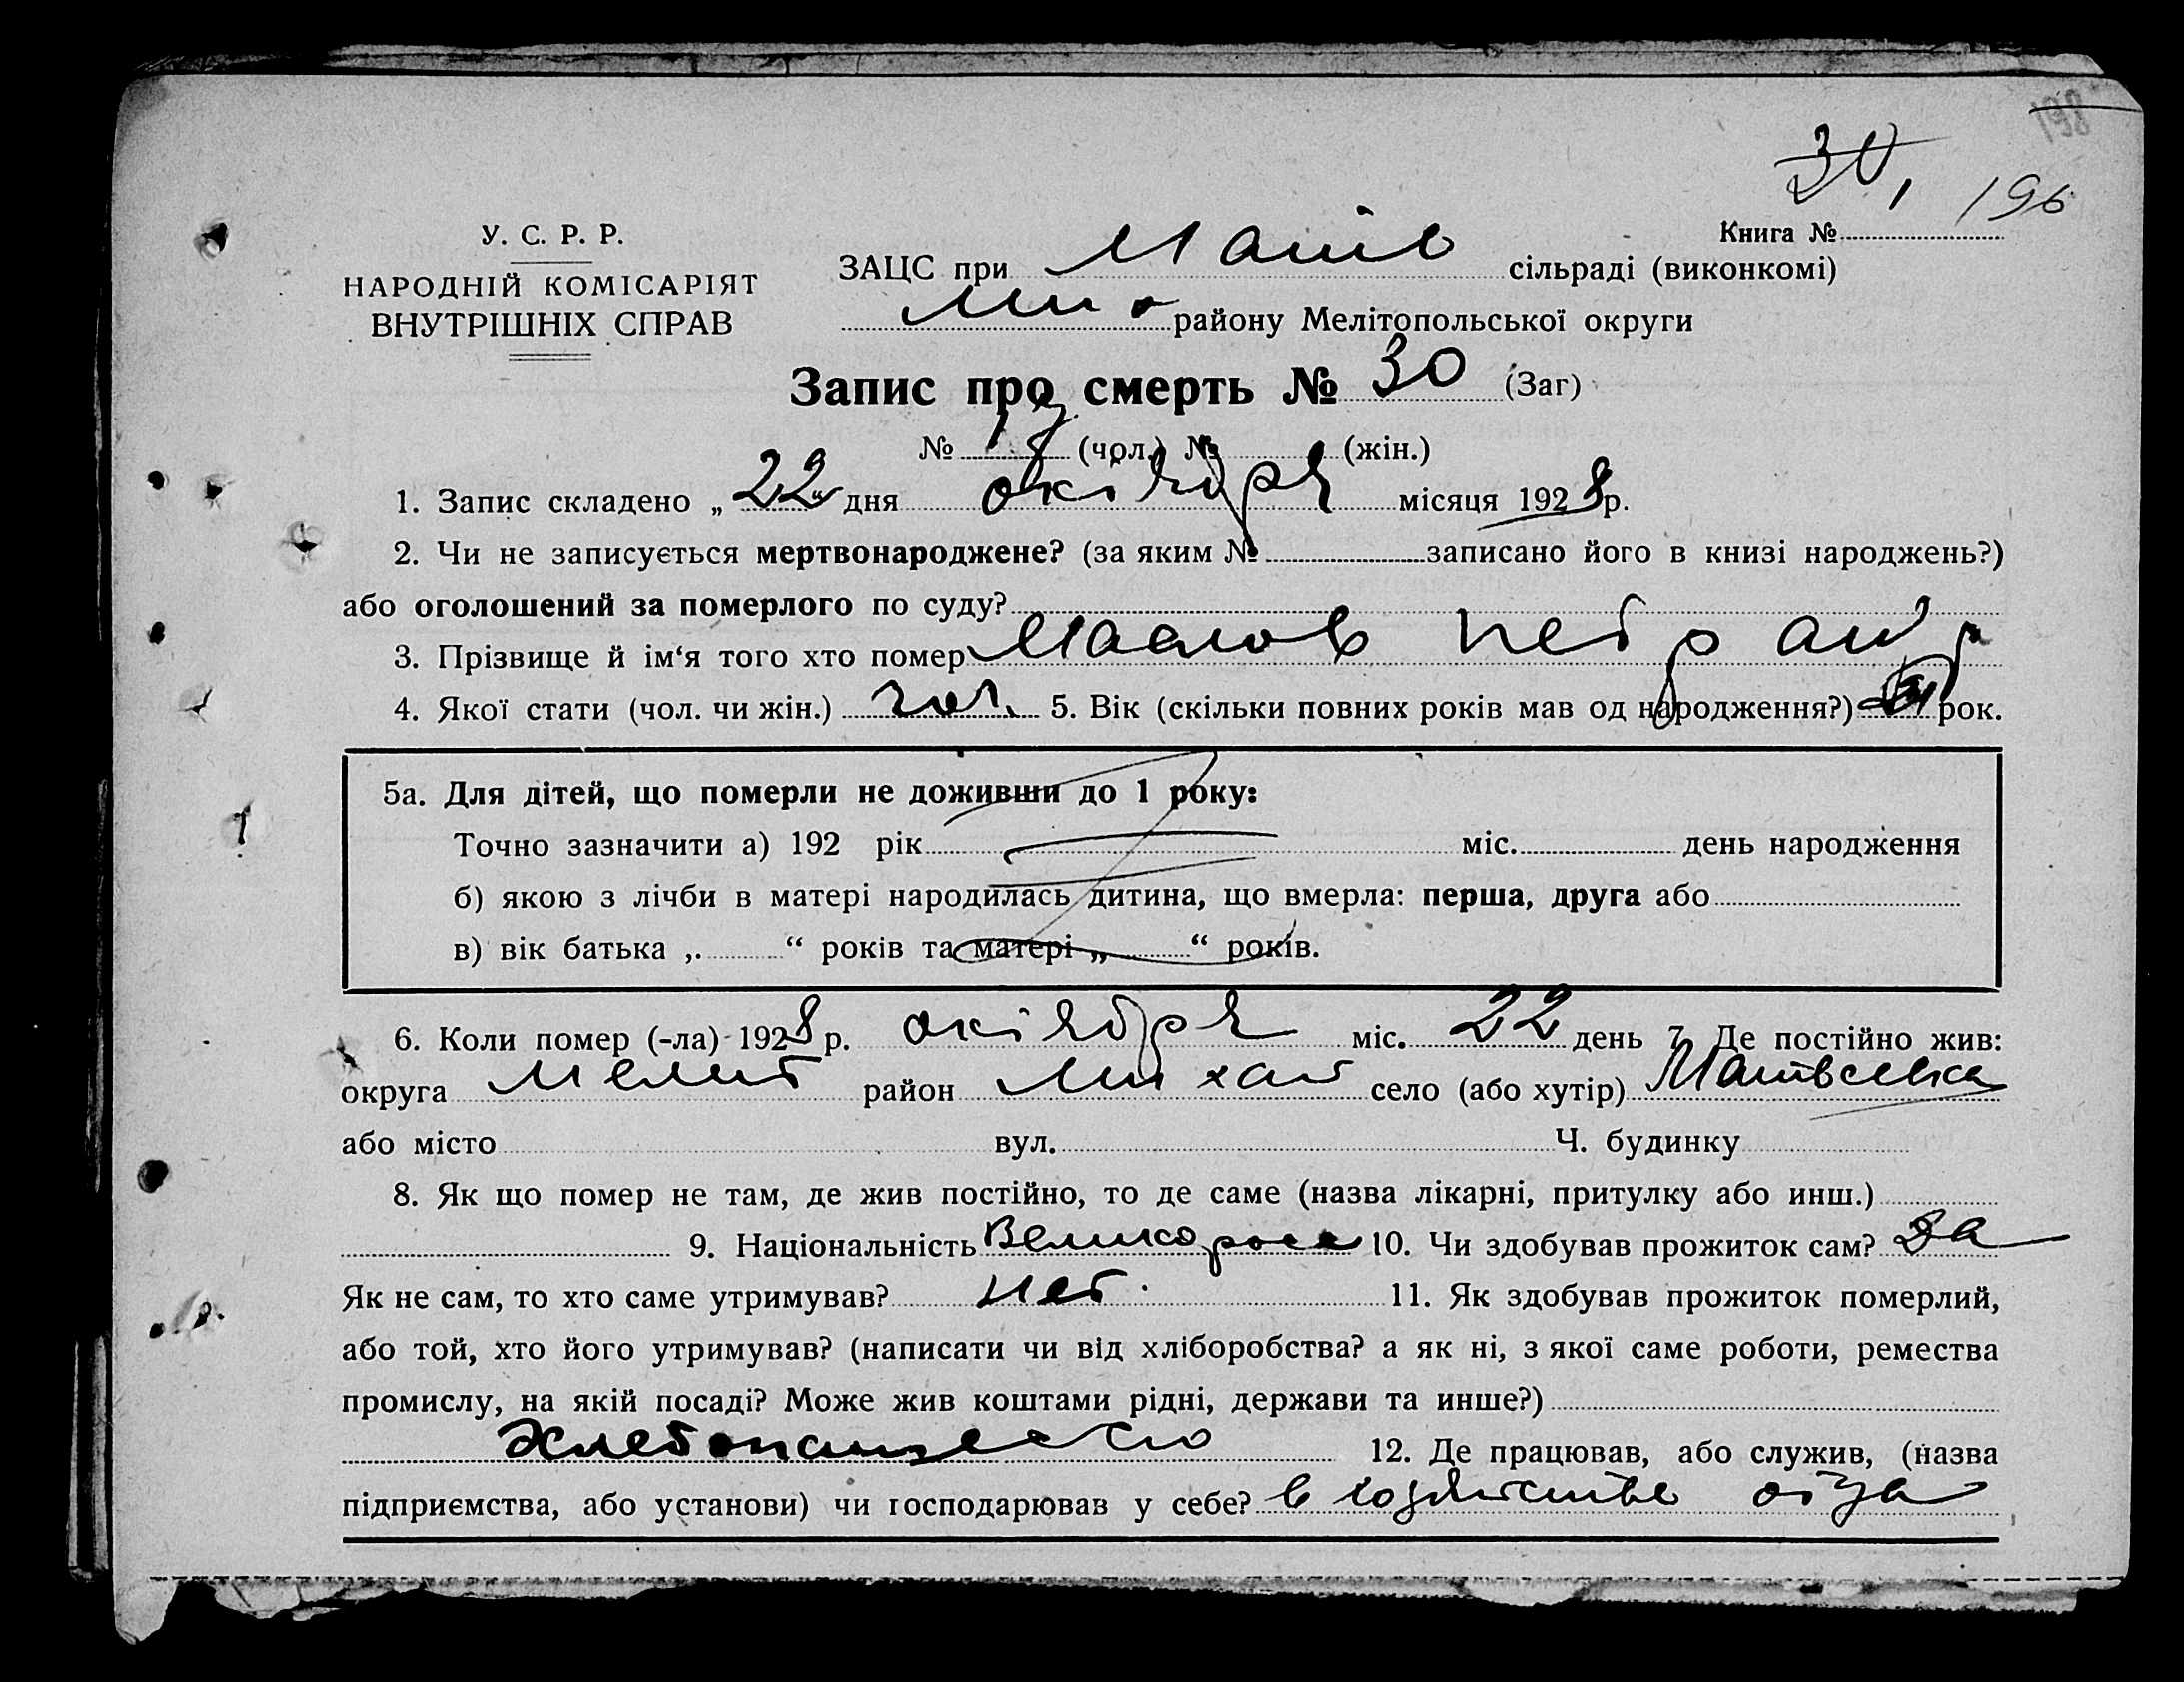 198
30, 196
Книга №
У. С. Р. Р.
НАРОДНІЙ КОМІСАРІЯТ
ВНУТРІШНІХ СПРАВ
ЗАЦС при Матв сільраді (виконкомі)
Мих району Мелітопольської округи
Запис про смерть № 30 (Заг)
№ (чол.) № (жін.)
1. Запис складено „ 22 “ дня октября місяця 1928 р.
2. Чи не записується мертвонароджене? (за яким № записано його в книзі народжень?)
або оголошений за померлого по суду?
3. Прізвище й ім‘я того хто помер Петр
4. Якої стати (чол. чи жін.) чол. 5. Вік (скільки повних років мав од народження?) рок.
5а. Для дітей, що померли не доживши до 1 року:
Точно зазначити а) 192 рік міс. день народження
б) якою з лічби в матері народилась дитина, що вмерла: перша, друга або
в) вік батька „ “ років та матері „ “ років.
6. Коли помер (-ла) 1928 р. октября міс. 22 день 7. Де постійно жив:
округа Мелит район Михай село (або хутір) Матвеевка
або місто вул. Ч. будинку
8. Як що помер не там, де жив постійно, то де саме (назва лікарні, притулку або инш.)
9. Національність Великоросс 10. Чи здобував прожиток сам? Да
Як не сам, то хто саме утримував? нет. 11. Як здобував прожиток померлий,
або той, хто його утримував? (написати чи від хліборобства? а як ні, з якої саме роботи, ремества
промислу, на якій посаді? Може жив коштами рідні, держави та инше?)
12. Де працював, або служив, (назва
підприємства, або установи) чи господарював у себе? в хозяистве отца